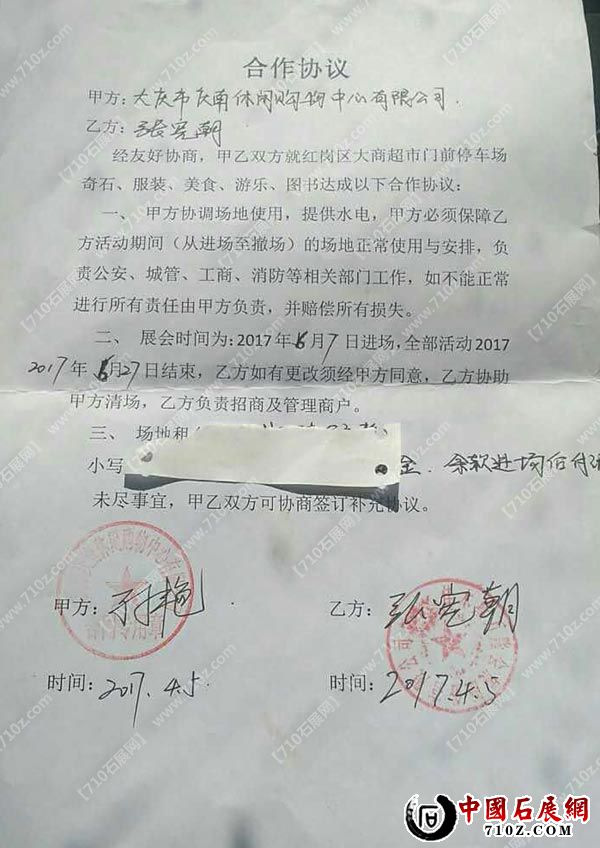 合作协议
甲方:大庆市庆南休闲购物中心有限公司.
乙方:张宪朝
经友好协商，甲乙双方就红岗区大商超市门前停车场
奇石、服装、美食、游乐、图书达成以下合作协议：
一、 甲方协调场地使用，提供水电，甲方必须保障乙
方活动期间（从进场至撤场）的场地正常使用与安排，负
责公安、城管、工商、消防等相关部门工作，如不能正常
进行所有责任由甲方负责，并赔偿所有损失。
二、 展会时间为：2017年6月7日进场，全部活动2017
2017年6月27日结束，乙方如有更改须经甲方同意，乙方协助
甲方清场，乙方负责招商及管理商户。
三、 场地租
小写 金．余款进场后付
未尽事宜，甲乙双方可协商签订补充协议。
甲方： 乙方：张宪朝
时间：2017.4.5 时间：2017.4.5
中國石展網
710Z.COM
【710石展网】
www.710z.com